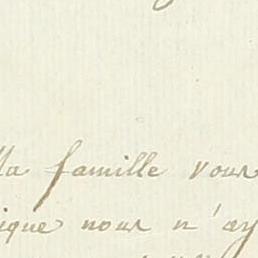 la famille vous
ique nous n'ay